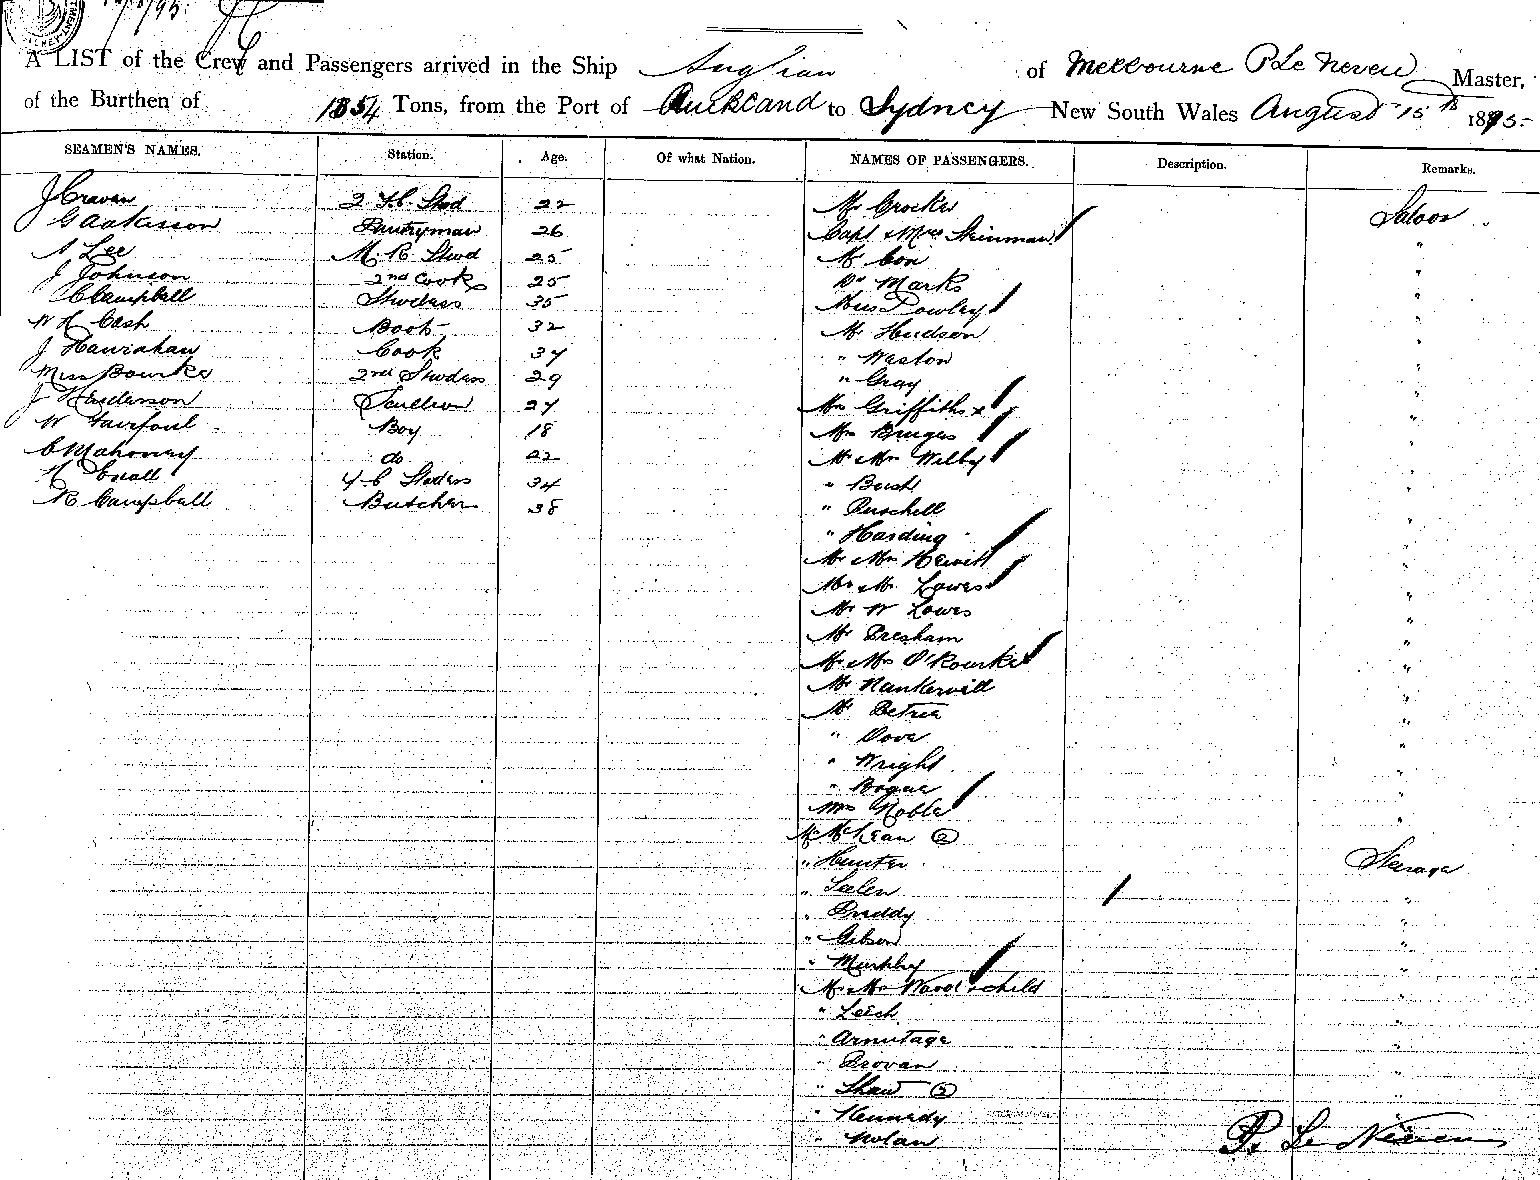 A LIST of the Crew and Passengers arrived in the Ship Anglian of Melbourne P Le Neveu Master,
of the Burthen of 1854 Tons, from the Port of Auckland to Sydney New South Wales August 15th 1895
SEAMEN'S NAMES. Station. Age. Of what Nation. NAMES OF PASSENGERS. Description. Remarks.
J Craven 2 Stwd 22 Mr Crocker Saloon
G Aatkisson Pantryman 26 Capt & Mrs Skinman
A Lee M. R. Stwd 25 Mr Con "
J Johnson 2nd Cook 25 Dr Marks "
C Campbell Stwdess 35 Miss Powley "
W H Cash Book 32 Mr Hudson "
J Hanrahan Cook 34 " Weston "
Miss Bourke 2nd Stwdess 29 " Gray "
J Henderson Scullion 24 Mrs Griffiths "
W Fairfoul Boy 18 Mrs Bruges "
C Mahoney do 22 Mr Mrs Wilby "
H 4 C 34 " Bush "
R Campbell Butcher 38 " Puschell "
" Harding "
Mr Mrs Hewitt "
Mr Mrs Lowes "
Mr W Lowes "
Mr Presham "
Mr Mrs O'Rourke "
Mr Nankervill "
Mr Petrie "
" Dove "
" Wright "
" Bogue "
Mrs Noble "
Mr McLean ②
" Hunter Steerage
" Seelen
" Priddy "
" Gibson "
" Murphy "
Mr Mrs Woodschild "
" Leich "
" Armitage "
" Brovan "
" Shaw ② "
" Kennedy
" Nolan
P. Le Neveu